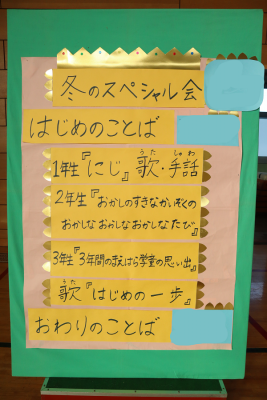 冬のスペシャル会
はじめのことば
1年生『にじ』歌・手話
うた しゅわ
2年生『おかしのすきなかいぞくの
おかしなおかしなおかしなたび』
3年生『3年間のまえはら学童の思い出』
うた
歌『はじめの一歩』
おわりのことば